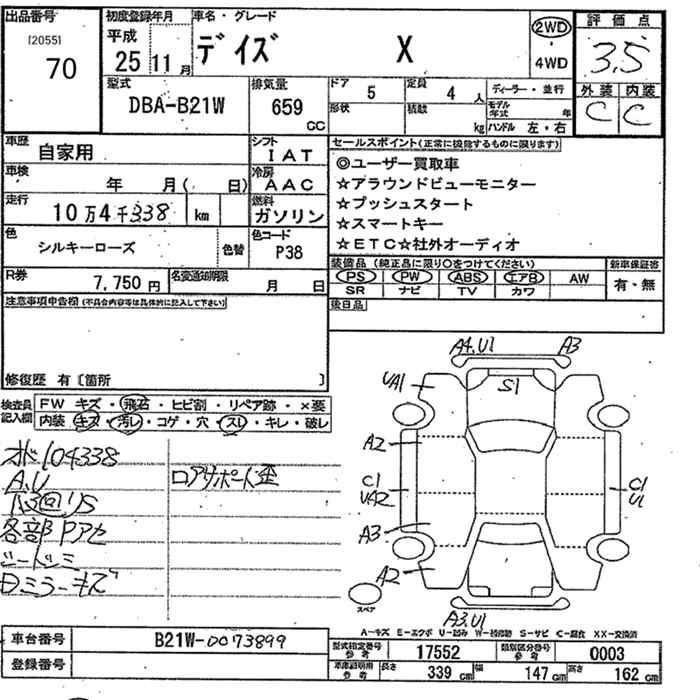 出品番号 初度登録年月 車名・グレード 評価点
[2055]
70
平成
25 11月
デイズ X
2WD
・
4WD
3.5
型式 排気量 ドア 5 定員 4 人 ディーラー・並行 外装 内装
DBA-B21W 659 cc
形状 積数 kg モデル年式 年 C C
ハンドル 左・右
車歴 自家用 シフト IAT
セールスポイント(正常に機能するものに限ります)
車検 年 月( 日) 冷房 AAC
◎ユーザー買取車
☆アラウンドビューモニター
走行 10万4千338 km 燃料 ガソリン
☆プッシュスタート
☆スマートキー
色 シルキーローズ 色替 色コード P38
☆ETC☆社外オーディオ
R券 7,750円 名変通知期限 月 日
装備品(純正品に限り○をつけてください) 新車保証書
PS PW ABS エアB AW 有・無
SR ナビ TV カワ
注意事項申告欄(不具合内容等は具体的に記入して下さい)
後日品
修復歴 有〔箇所 〕
検査員記入欄 FW キズ・飛石・ヒビ割・リペア跡・×要
内装 キズ・汚レ・コゲ・穴・スレ・キレ・破レ
A4.U1 A3
UA1 S1
A2
C1
UA2
C1
U1
A3
A2
A3.U1
スペア
104338
A.U
ロアサポート歪
各部Pアセ
シートシミ
ミラーキズ
A-キズ E-エクボ U-凹み W-補修跡 S-サビ C-腐食 XX-交換済
車台番号 B21W-0073899
登録番号
型式指定番号 参考 17552 類別区分番号 参考 0003
車庫証明用 参考 長さ 339 cm 幅 147 cm 高さ 162 cm